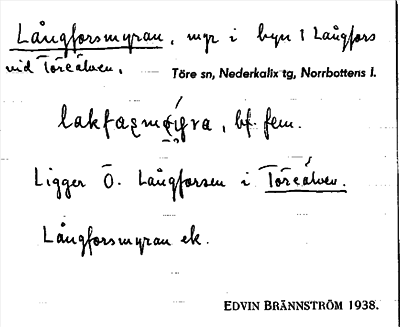 Långforsmyran, myr i byn 1 Långfors
vid Töreälven.
Töre sn, Nederkalix tg, Norrbottens l.
bf. fem.
Ligger Ö. Långforsen i Töreälven.
Långforsmyran ek.
EDVIN BRÄNNSTRÖM 1938.